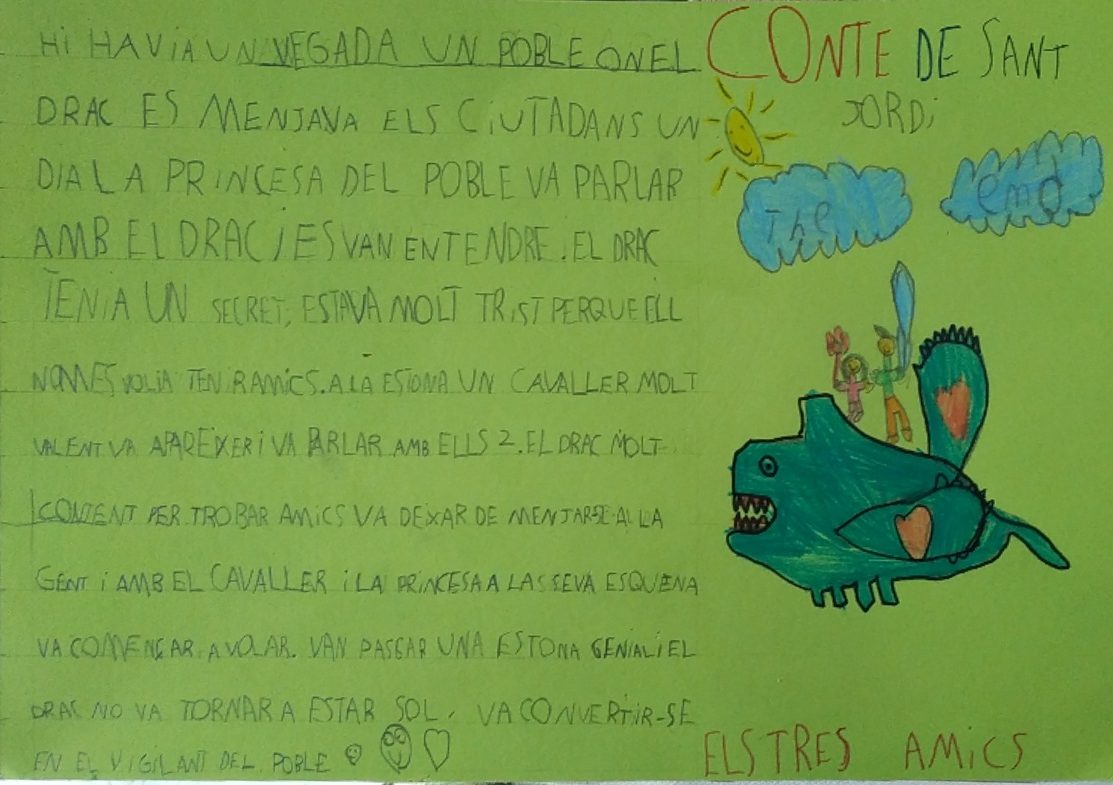 HI HAVIA UN VEGADA UN POBLE ON EL
DRAC ES MENJAVA ELS CIUTADANS UN
DIA LA PRINCESA DEL POBLE VA PARLAR
AMB EL DRAC I ES VAN ENTENDRE. EL DRAC
TENIA UN SECRET, ESTAVA MOLT TRIST PERQUE ELL
NOMES VOLIA TENIR AMICS. A LA ESTONA UN CAVALLER MOLT
VALENT VA APAREIXER I VA PARLAR AMB ELLS 2. EL DRAC MOLT
CONTENT PER TROBAR AMICS VA DEIXAR DE MENJAR-SE A LA
GENT I AMB EL CAVALLER I LA PRINCESA A LA SEVA ESQUENA
VA COMENÇAR A VOLAR. VAN PASSAR UNA ESTONA GENIAL I EL
DRAC NO VA TORNAR A ESTAR SOL, VA CONVERTIR-SE
EN EL VIGILANT DEL POBLE
CONTE DE SANT
JORDI
The end
ELS TRES AMICS